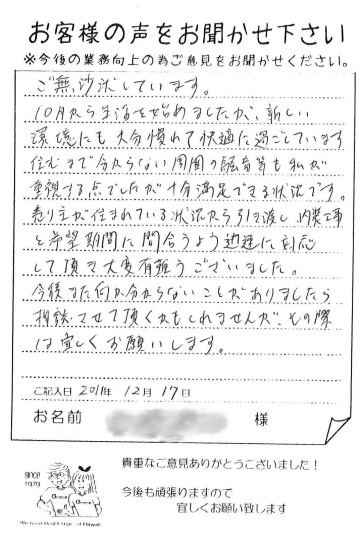 お客様の声をお聞かせ下さい
※今後の業務向上の為ご意見をお聞かせください。
ご無沙汰しています。
10月から生活を始めましたが、新しい
環境にも大分慣れて快適に過ごしています
住むまで分からない周囲の騒音等も私が
重視する点でしたが十分満足できる状況です。
売り主が住まれている状況から引き渡し、内装工事
と希望期間に間合うよう迅速に対応
して頂き大変有難うございました。
今後また何か分からないことがありましたら
相談させて頂くかもしれませんが、その際
は宜しくお願いします。
ご記入日 2011年 12月 17日
お名前 様
貴重なご意見ありがとうございました!
今後も頑張りますので
宜しくお願い致します
since
1979